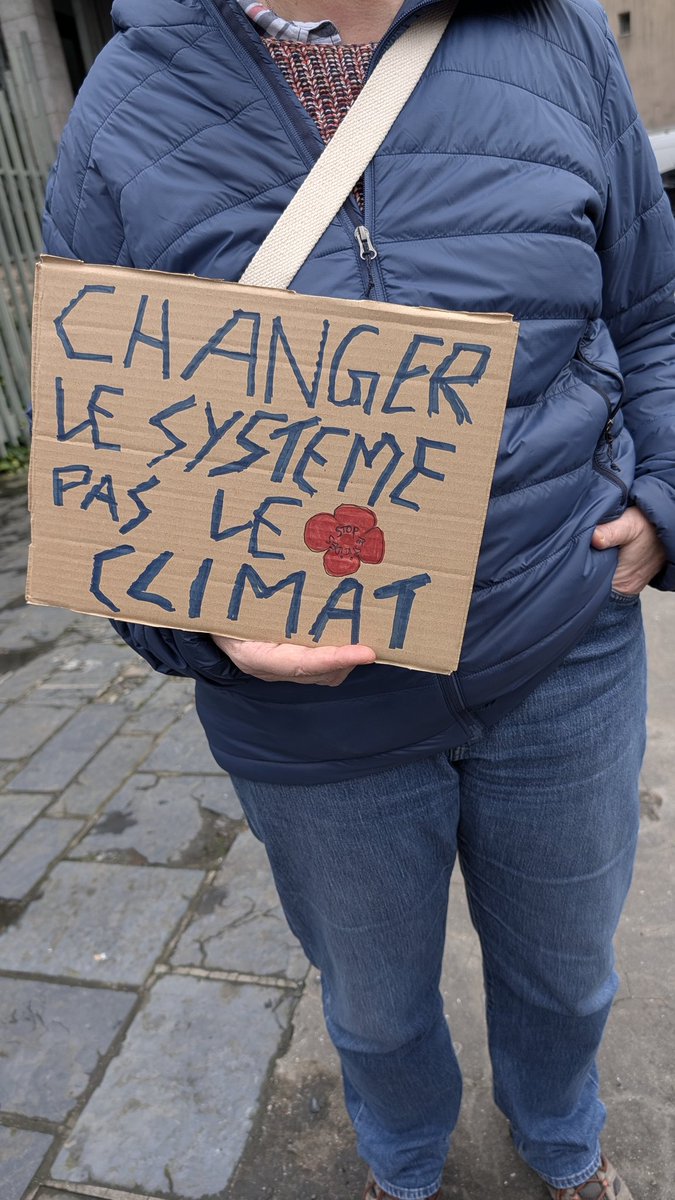 CHANGER
LE SYSTEME
PAS LE
STOP
CLIMAT